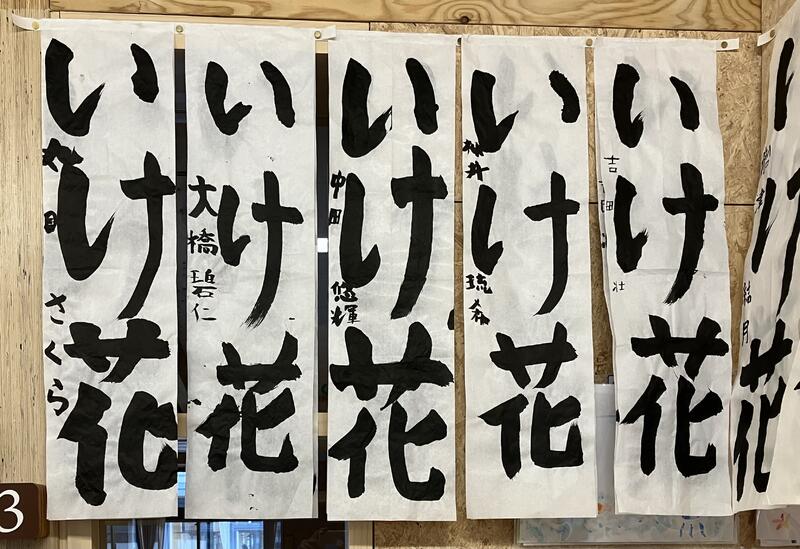 いけ花
さくら
いけ花
大橋碧仁
いけ花
中田悠輝
いけ花
いけ花
吉田壮
け花
結月
3